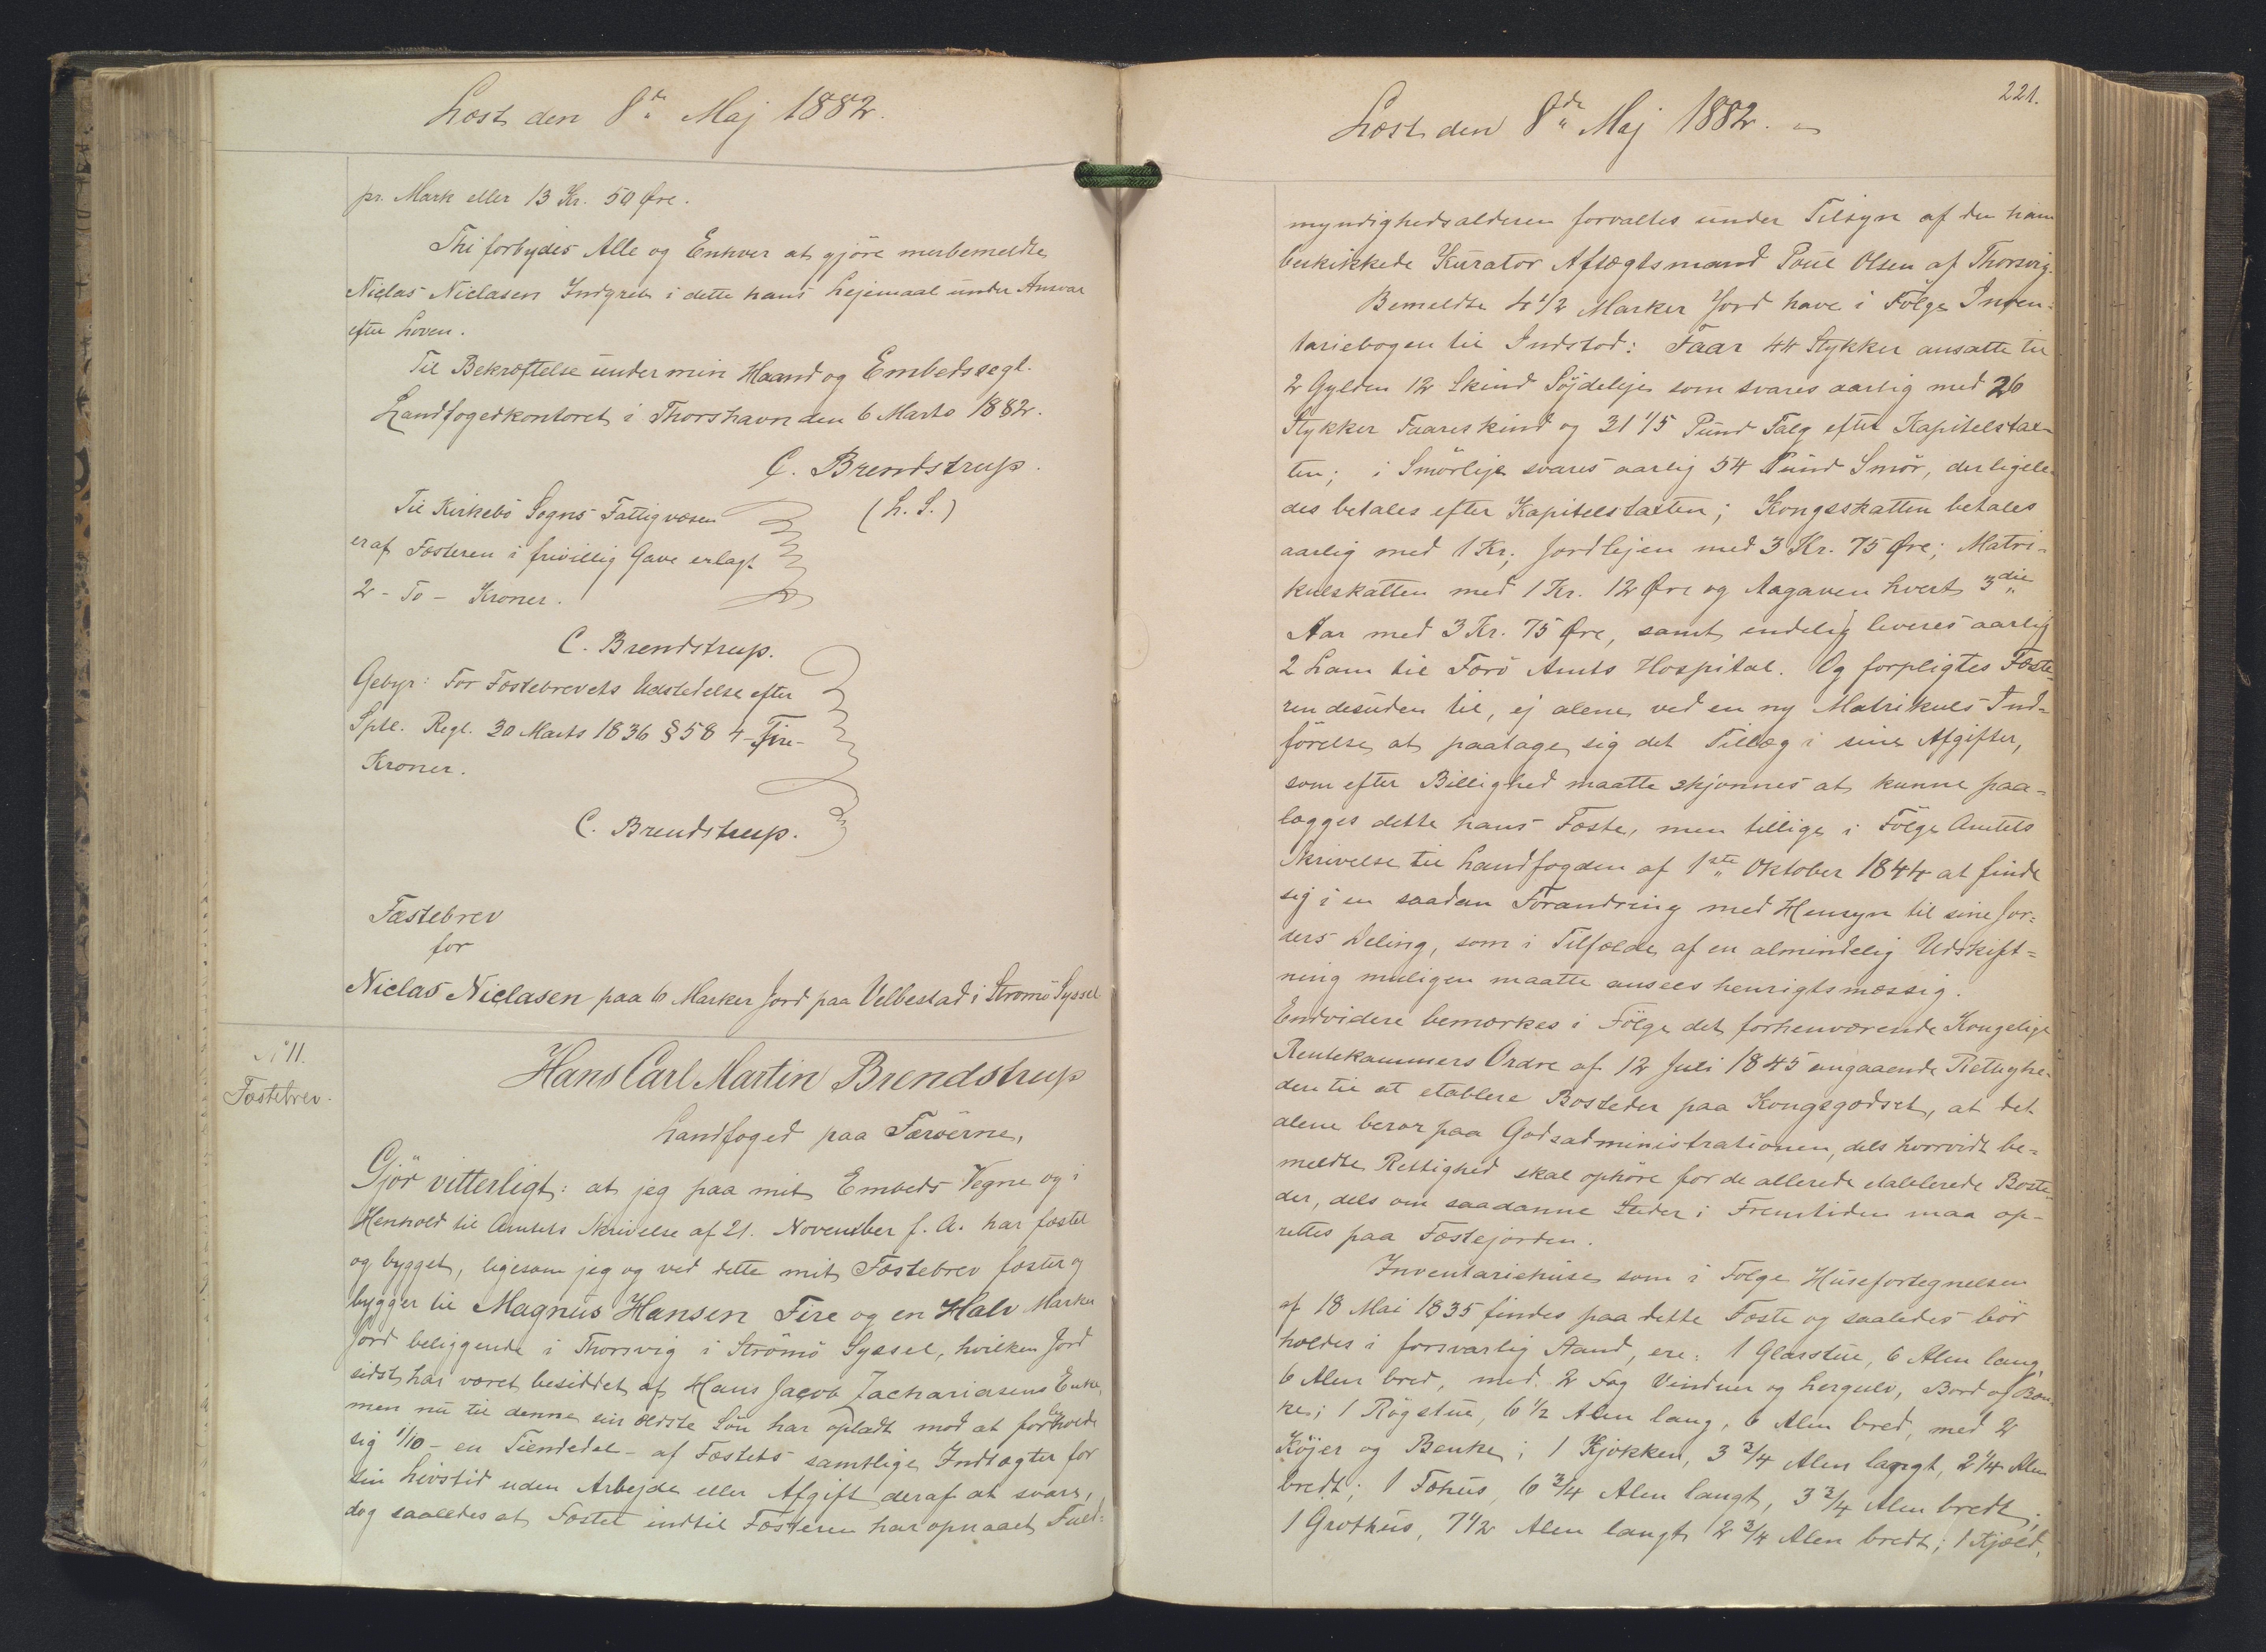 Læst den 8de Maj 1882.
pr. Mark eller 13 Kr. 50 Øre.
Thi forbydes Alle og Enhver at gjöre merbemeldte
Niclas Niclasen Indgreb i dette hans Lejemaal under Ansvar
efter Loven.
Til Bekræftelse under min Haand og Embedssegl.
Landfogedkontoret i Thorshavn den 6 Marts 1882.
C. Brendstrup.
(L. S.)
Til Kirkebö Sogns Fattigvæsen
er af Fæsteren i frivillig Gave erlagt
2 - To - Kroner.
C. Brendstrup.
Gebyr: For Fæstebrevets Udstedelse efter
Sptl. Regl. 30 Marts 1836 § 58 4 - Fire -
Kroner.
C. Brendstrup.
Fæstebrev
for
Niclas Niclasen paa 6 Marker Jord paa Velbestad i Strömö Syssel
No 11.
Fæstebrev.
Hans Carl Martin Brendstrup
Landfoged paa Færöerne,
Gjör vitterligt: at jeg paa mit Embeds Vegne og i
Henhold til Amtets Skrivelse af 21. November f. A. har fæstet
og bygget, ligesom jeg og ved dette mit Fæstebrev fæster og
bygger til Magnus Hansen Fire og en Halv Marker
Jord beliggende i Thorsvig i Strömö Syssel, hvilken Jord
sidst har været besiddet af Hans Jacob Zachariasens Enke,
men nu til denne sin ældste Sön har opladt mod at forbeholde
sig 1/10 - en Tiendedel - af Fæstets samtlige Indtægter for
sin Livstid uden Arbejde eller Afgift deraf at svare,
dog saaledes at Fæstet indtil Fæsteren har opnaaet Fuld-
221.
Læst den 8de Maj 1882.
myndighedsalderen forvaltes under Tilsyn af den ham
beskikkede Kurator Aftægtsmand Poul Olsen af Thorsvig.
Bemeldte 4 1/2 Marker Jord have i Fölge Inven-
tariebogen til Indstod: Faar 44 Stykker ansatte til
2 Gylden 12 Skind Söjdeleje som svares aarlig med 26
Stykker Faareskind og 31 1/5 Pund Talg efter Kapitelstax-
ten; i Smörleje svares aarlig 54 Pund Smör, der ligele-
des betales efter Kapitelstaxten; Kongsskatten betales
aarlig med 1 Kr, Jordlejen med 3 Kr. 75 Øre; Matri-
kulskatten med 1 Kr. 12 Øre og Aagaven hvert 3die
Aar med 3 Kr. 75 Øre, samt endelig leveres aarlig
2 Lam til Færö Amts Hospital. Og forpligtes Fæste-
ren desuden til, ej alene ved en ny Matrikuls Ind-
förelse at paatage sig det Tillæg i sine Afgifter,
som efter Billighed maatte skjönnes at kunne paa-
lægges dette hans Fæste, men tillige i Fölge Amtets
Skrivelse til Landfogden af 1ste Oktober 1844 at finde
sig i en saadan Forandring med Hensyn til sine Jor-
ders Deling, som i Tilfælde af en almindelig Udskift-
ning muligen maatte ansees hensigtsmæssig.
Endvidere bemærkes i Fölge det forhenværende Kongelige
Rentekammers Ordre af 12 Juli 1845 angaaende Rettighe-
den til at etablere Bosteder paa Kongsgodset, at det
alene beror paa Godsadministrationen, dels hvorvidt be-
meldte Rettighed skal ophöre for de allerede etablerede Boste-
der, dels om saadanne Steder i Fremtiden maa op-
rettes paa Fæstejorden.
Inventariehuse som i Fölge Husefortegnelsen
af 18 Mai 1835 findes paa dette Fæste og saaledes bör
holdes i forsvarlig Stand, ere: 1 Glasstue, 6 Alen lang,
6 Alen bred, med 2 Fag Vinduer og Lergulv, Bord og Bæn-
ke; 1 Rögstue, 6 1/2 Alen lang, 6 Alen bred, med 2
Köjer og Bænke; 1 Kjökken, 3 3/4 Alen langt, 2 1/4 Alen
bredt; 1 Fæhus, 6 3/4 Alen langt, 3 3/4 Alen bredt;
1 Grothus, 7 1/2 Alen langt 2 3/4 Alen bredt; 1 Kjæld.